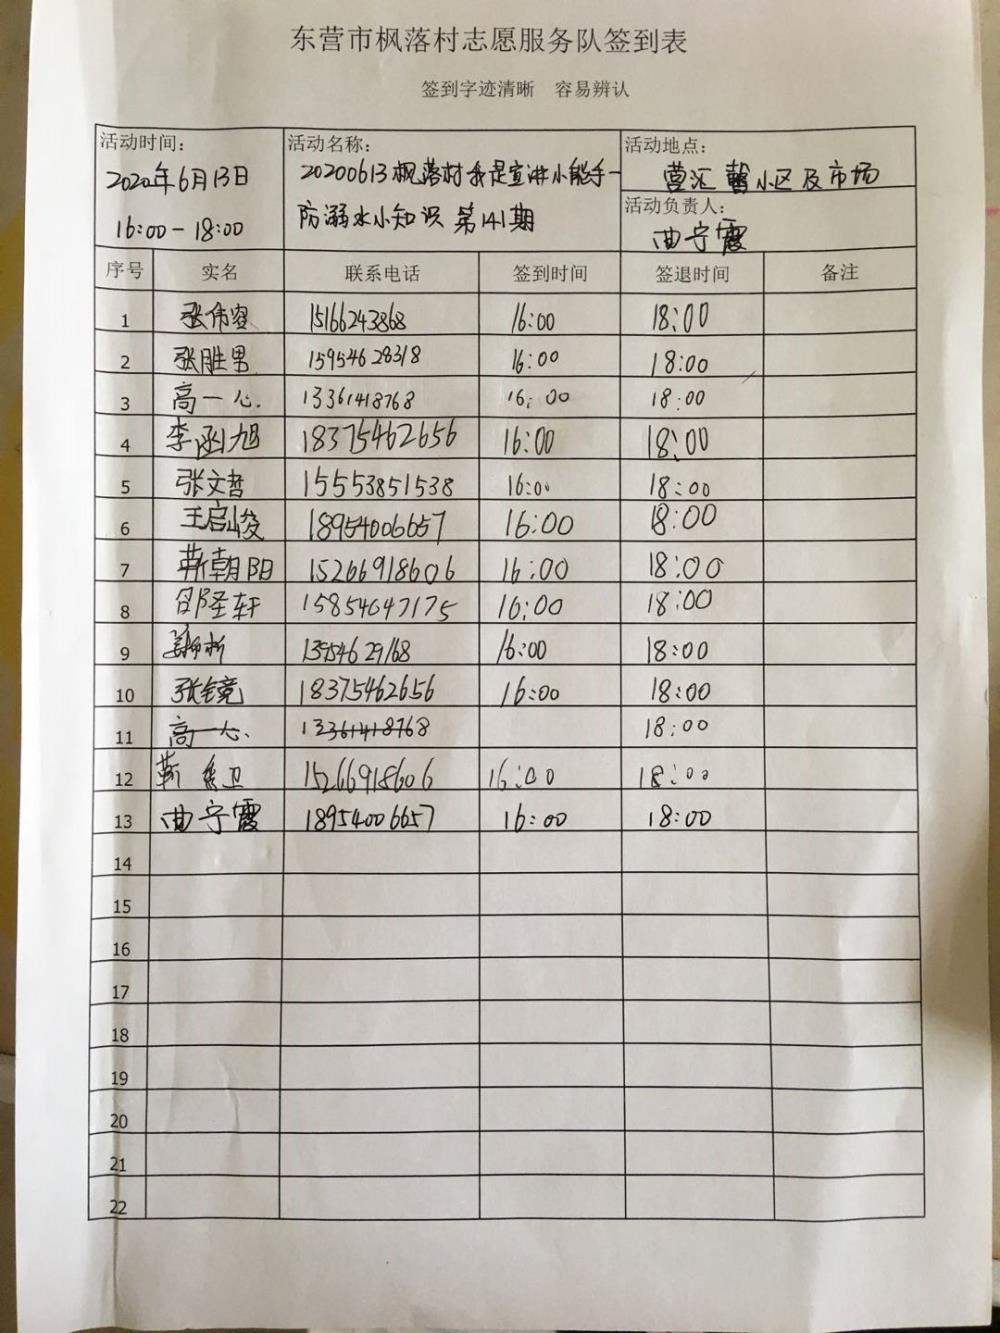 东营市枫落村志愿服务队签到表
签到字迹清晰 容易辨认
活动时间：
2020年6月13日
16:00-18:00
活动名称：
20200613枫落村我是宣讲小能手-
防溺水小知识 第141期
活动地点：
营汇馨小区及市场
活动负责人：
曲宁霞
序号 实名 联系电话 签到时间 签退时间 备注
1 张伟容 15166243868 16:00 18:00
2 张胜男 15954628318 16:00 18:00
3 高一心. 13361418768 16:00 18:00
4 李函旭 18375462656 16:00 18:00
5 张文哲 15553851538 16:00 18:00
6 王启峻 18954006657 16:00 18:00
7 靳朝阳 15266918606 16:00 18:00
8 邵圣轩 15854647175 16:00 18:00
9 13954629168 16:00 18:00
10 张镜 18375462656 16:00 18:00
11 高一心. 13361418768 18:00
12 靳 卫 15266918606 16:00 18:00
13 曲宁霞 18954006657 16:00 18:00
14
15
16
17
18
19
20
21
22